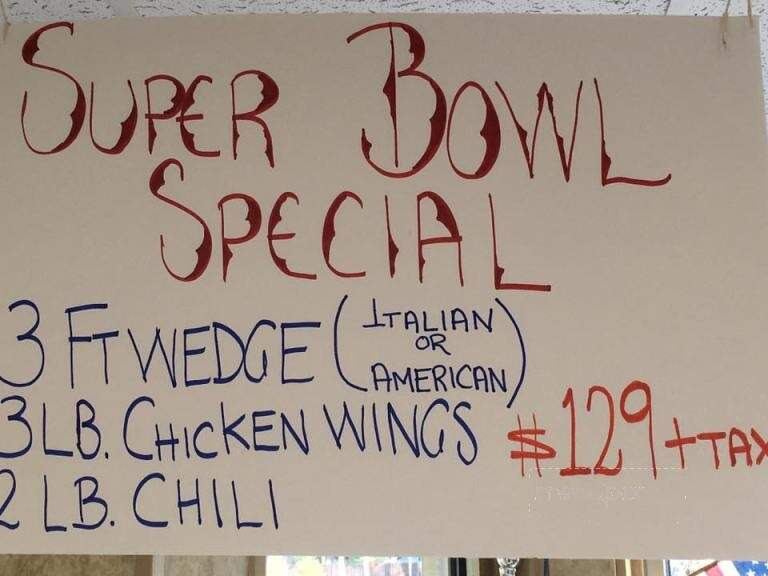 SUPER BOWL
SPECIAL
3 FT WEDGE (ITALIAN
OR
AMERICAN)
3 LB. CHICKEN WINGS
2 LB. CHILI
$129 + TAX